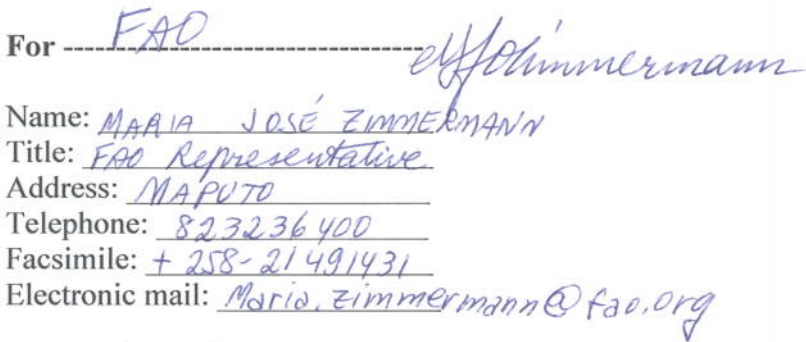 For FAO
Name: MARIA JOSÉ ZIMMERMANN
Title: FAO Representative
Address: MAPUTO
Telephone: 823236400
Facsimile: + 258-21491431
Electronic mail: Maria.zimmermann@fao.org